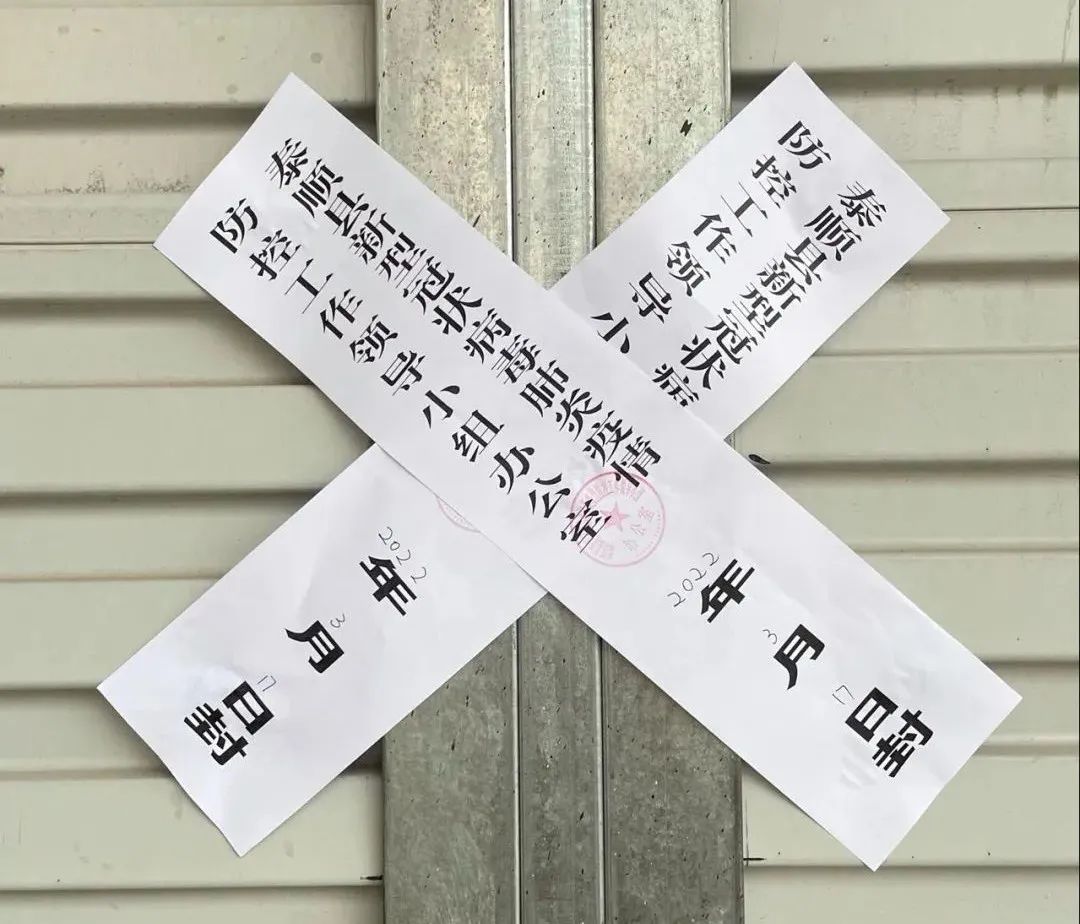 泰顺县新型冠状病毒肺炎疫情
防控工作领导小组办公室
2022年3月17日封
泰顺县新型冠状病
防控工作领导小
2022年 月 日封
办公室